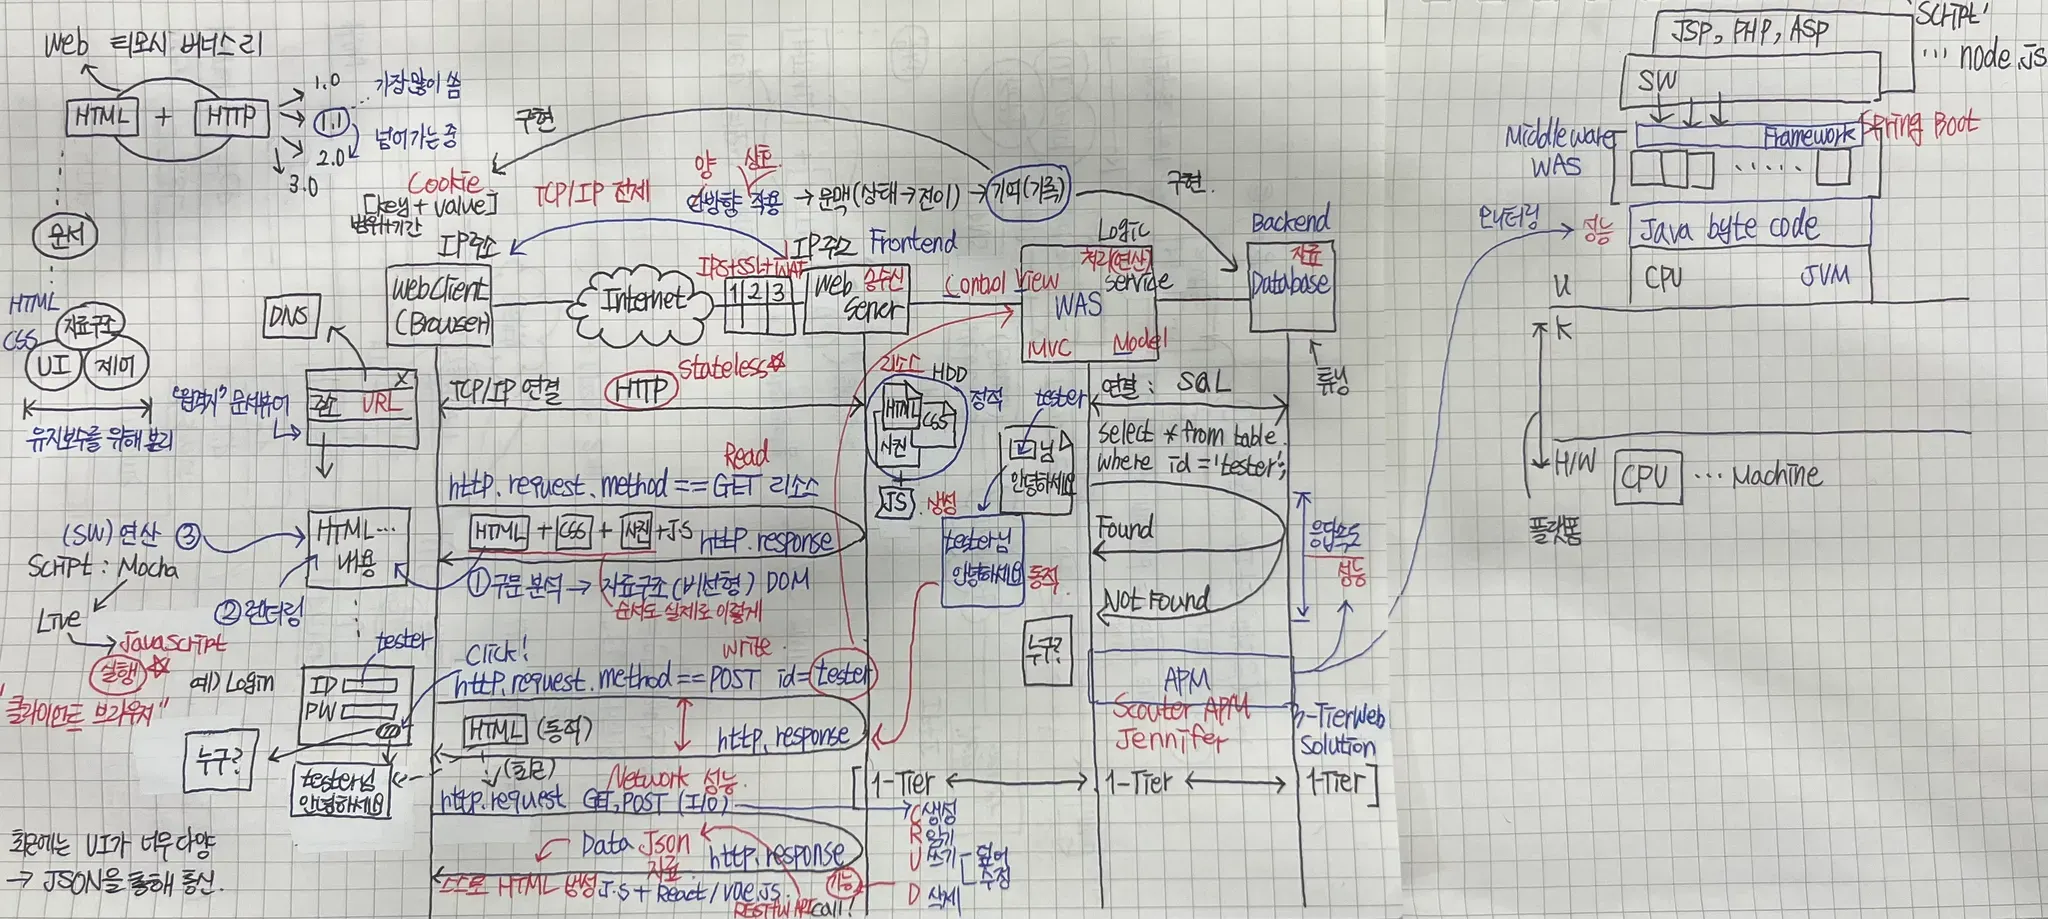 Web 티모시 버너스리
HTML + HTTP
1.0
1.1
2.0
3.0
가장 많이 씀
넘어가는 중
문서
HTML
CSS
자료구조
UI
제어
유지보수를 위해 분리
DNS
"원격지" 문서뷰어
주소 URL
X
구현
Cookie
[key + value]
범위+기간
IP주소
TCP/IP 전제
양
상호
단방향 작용 → 문맥(상태→전이) → 기억(기록)
구현.
WebClient
(Browser)
Internet
IPS+SSL+WAF
1 2 3
IP주소 Frontend
Web 송수신
Server
Control View
Logic
처리(연산)
Service
WAS
MVC Model
Backend
자료
Database
튜닝
TCP/IP 연결
HTTP
Stateless
리소스
HDD
HTML
CSS
사진
정적
+
JS
생성
tester
님
안녕하세요
tester님
안녕하세요
동적
연결: SQL
select * from table
where id = 'tester';
Found
Not Found
응답속도
성능
누구?
Read
http.request.method == GET 리소스
HTML + CSS + 사진 + J.S
http.response
① 구문 분석 → 자료구조(비선형) DOM
순서도 실제로 이렇게
(SW) 연산 ③
HTML...
내용
Script : Mocha
② 렌더링
Live
JavaScript
실행
"클라이언트 브라우저"
예) Login
tester
ID
PW
누구?
tester님
안녕하세요
Click!
write
http.request.method == POST id=tester
HTML (동적)
http.response
(최근)
Network 성능
http.request GET, POST (I/O)
Data Json
자료
http.response
스스로 HTML 생성 J.S + React / Vue.JS
RESTful API call!
기능
C 생성
R 읽기
U 쓰기
덮어
수정
D 삭제
APM
Scouter APM
Jennifer
n-Tier Web
Solution
[1-Tier ↔ 1-Tier ↔ 1-Tier]
최근에는 UI가 너무 다양
→ JSON을 통해 통신.
JSP, PHP, ASP
'Script'
... node.JS
SW
Framework
Spring Boot
Middleware
WAS
.....
인터링
성능
Java byte code
CPU JVM
U
K
H/W
CPU ... Machine
플랫폼